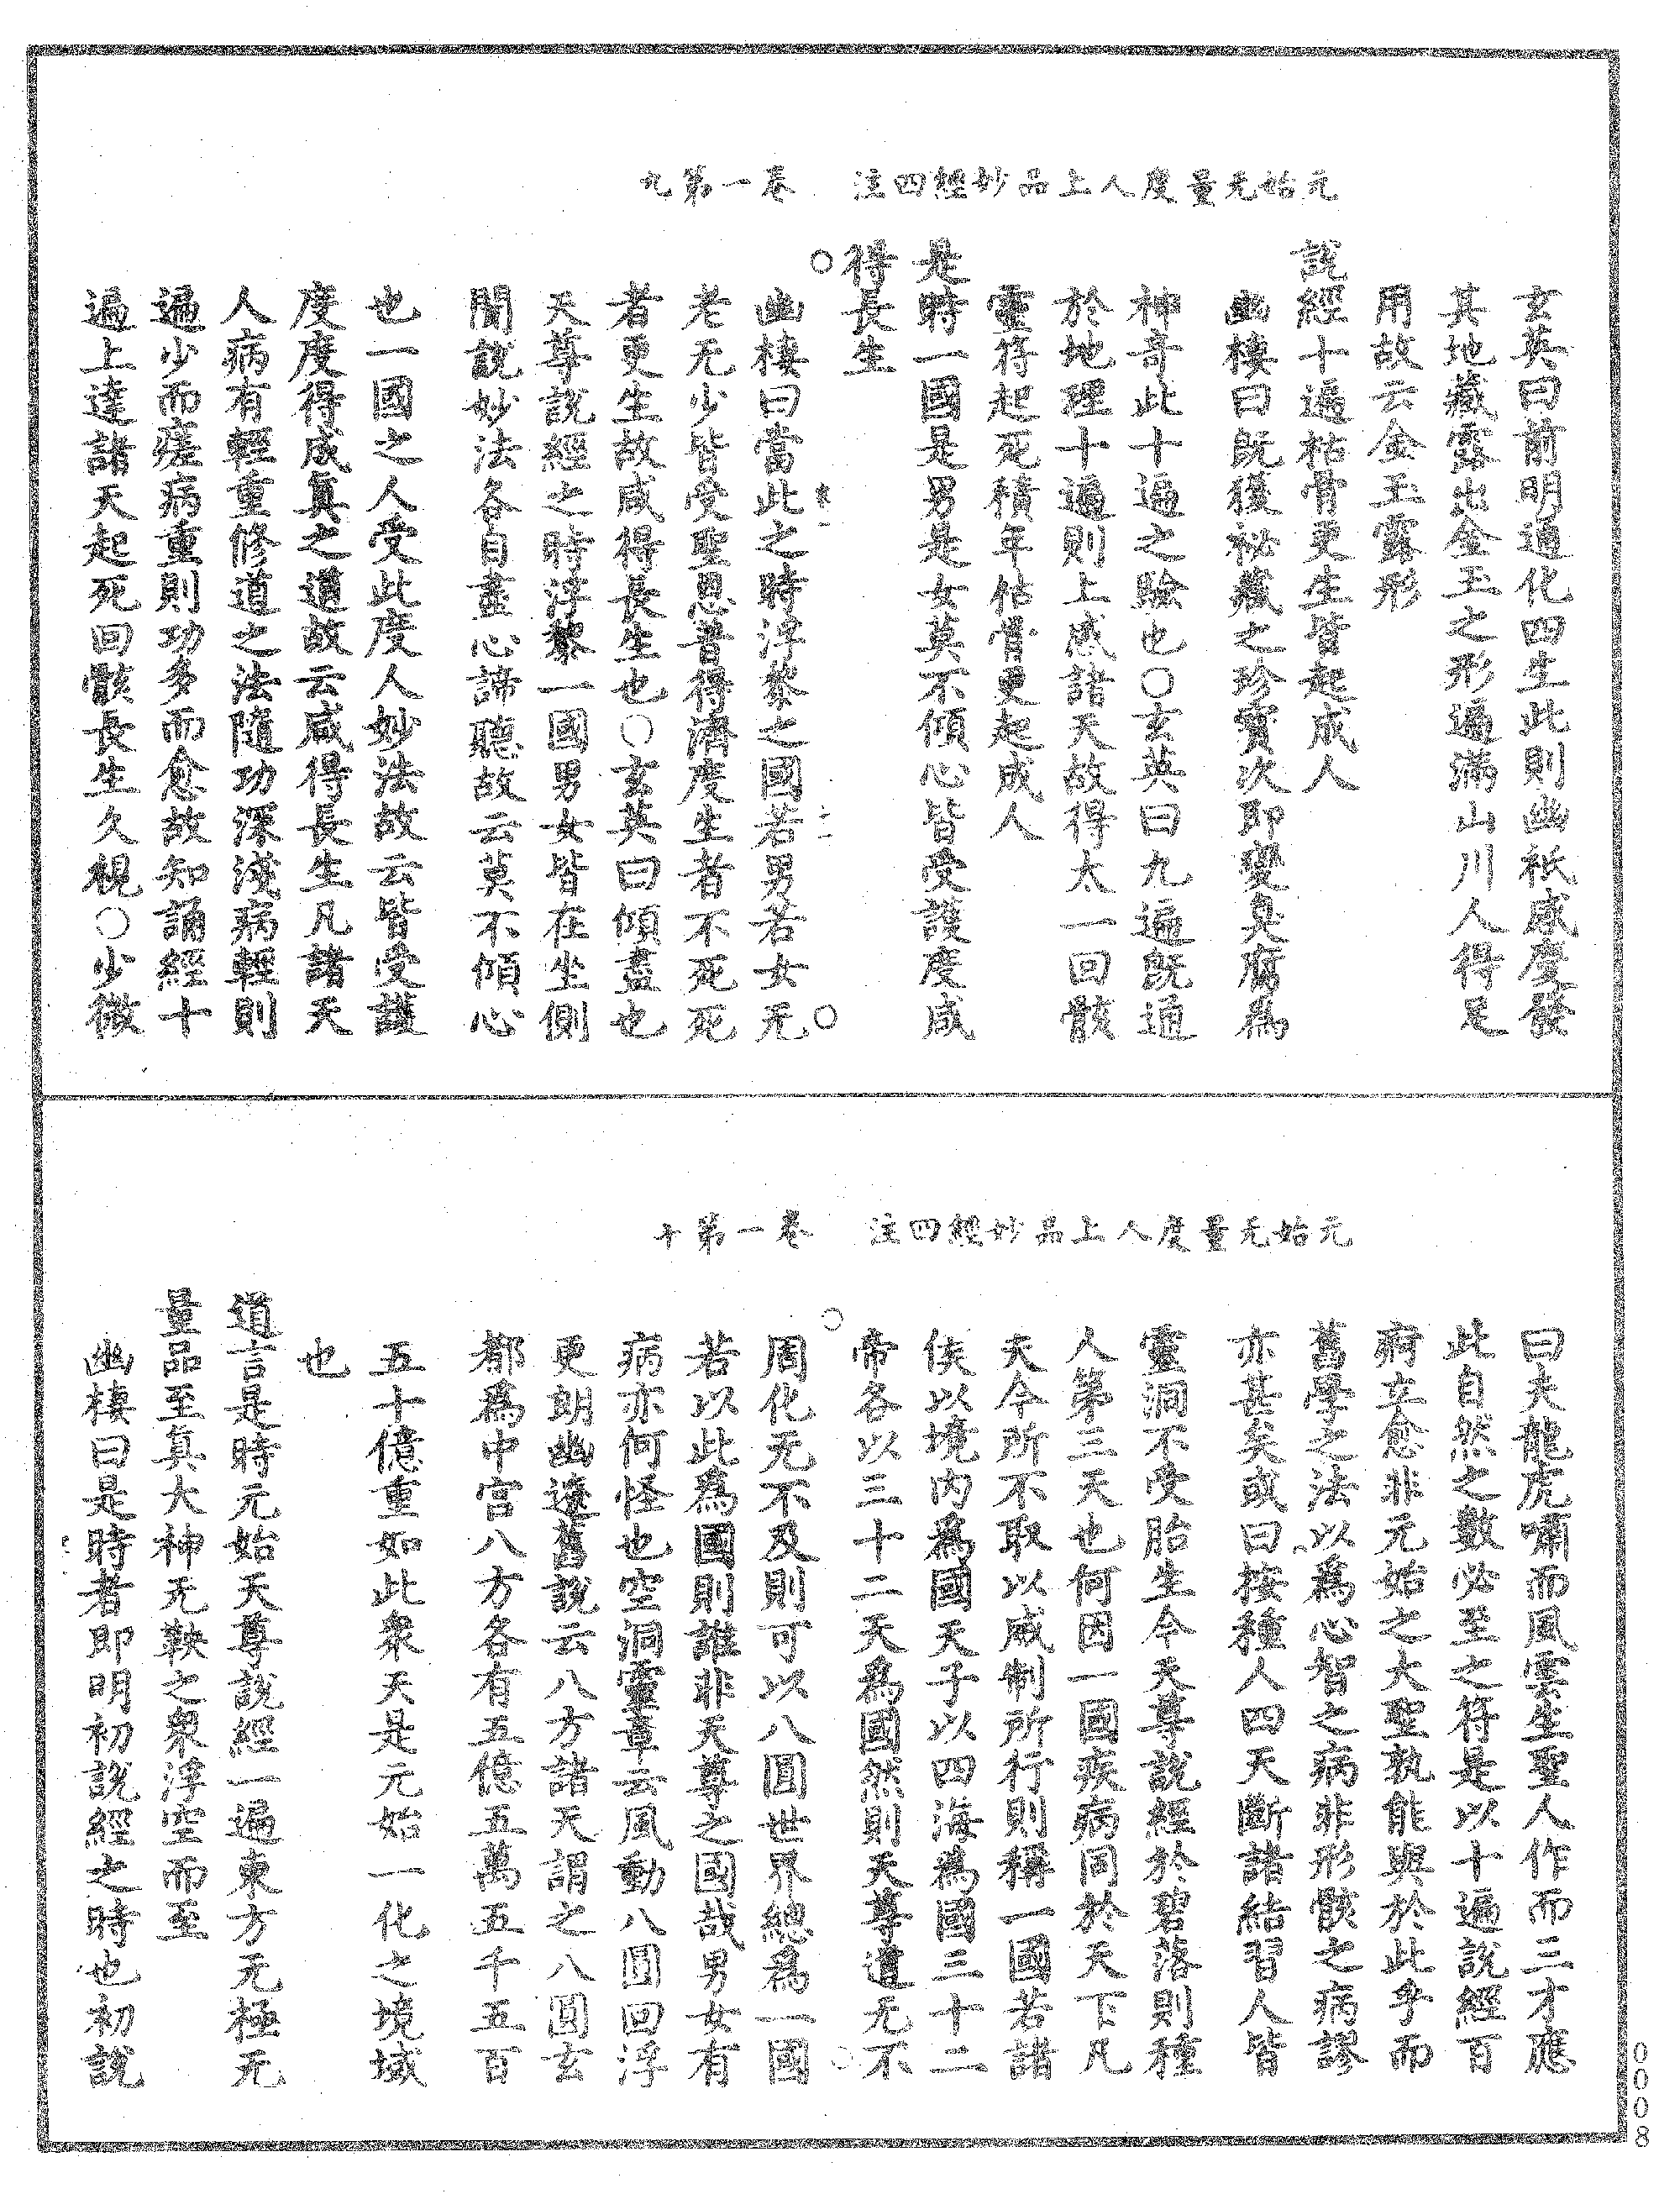 元始无量度人上品妙經四注　卷一第九
玄英曰前明通化四生此則幽祇感慶發
其地藏露出金玉之形遍滿山川人得足
用故云金玉露形
說經十遍枯骨更生皆起成人
幽棲曰既獲祕藏之珍寶次即變臭腐爲
神奇此十遍之驗也○玄英曰九遍既通
於地理十遍則上感諸天故得太一回骸
靈符起死積年枯骨更起成人
是時一國是男是女莫不傾心皆受護度咸
得長生
幽棲曰當此之時浮黎之國若男若女无
老无少皆受聖恩普得濟度生者不死死
者更生故咸得長生也○玄英曰傾盡也
天尊說經之時浮黎一國男女皆在坐側
聞說妙法各自盡心諦聽故云莫不傾心
也一國之人受此度人妙法故云皆受護
度度得成真之道故云咸得長生凡諸天
人病有輕重修道之法隨功深淺病輕則
遍少而瘥病重則功多而愈故知誦經十
遍上達諸天起死回骸長生久視○少微
元始无量度人上品妙經四注　卷一第十
曰夫龍虎嘯而風雲生聖人作而三才應
此自然之數必至之符是以十遍說經百
痾立愈非元始之大聖孰能與於此乎而
舊學之法以爲心智之病非形骸之病謬
亦甚矣或曰按種人四天斷諸結習人皆
靈洞不受胎生今天尊說經於碧落則種
人第三天也何因一國疾病同於天下凡
夫今所不取以威制所行則稱一國若諸
侯以境內爲國天子以四海爲國三十二
帝各以三十二天爲國然則天尊道无不
周化无不及則可以八圓世界總爲一國
若以此爲國則誰非天尊之國哉男女有
病亦何怪也空洞靈章云風動八圓回浮
更朗幽邃舊說云八方諸天謂之八圓玄
都爲中宮八方各有五億五萬五千五百
五十億重如此衆天是元始一化之境域
也
道言是時元始天尊說經一遍東方无極无
量品至真大神无鞅之衆浮空而至
幽棲曰是時者即明初說經之時也初說
0008